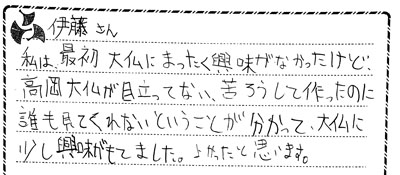 伊藤さん
私は、最初大仏にまったく興味がなかったけど、
高岡大仏が目立ってない、苦ろうして作ったのに
誰も見てくれないということが分かって、大仏に
少し興味がもてました。よかったと思います。